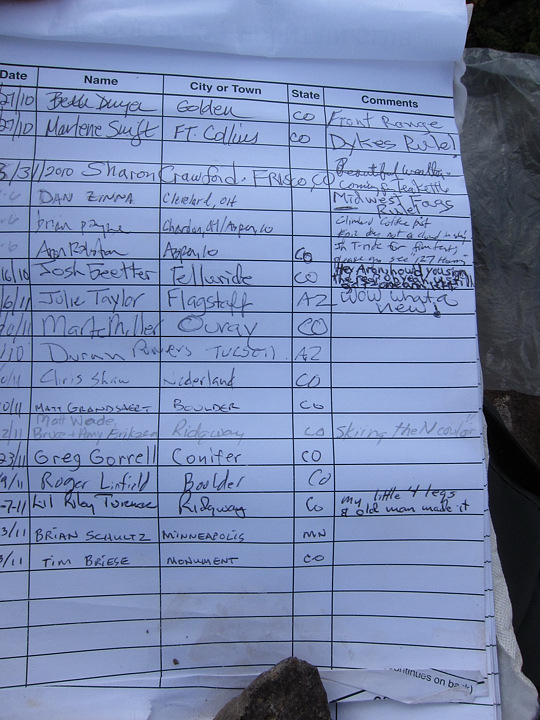 Date Name City or Town State Comments
27/10 Golden CO Front Range
27/10 Marlene Swift FT. Collins CO Dykes Rule!
3/31/2010 Sharon Crawford. Frisco, CO Beautiful weather
Coming for teakettle
6 DAN ZINNA Cleveland, OH Midwest Fags Rule!
6 brian Aspen, CO Climbed Coffee pot
not a cloud in sky
6 Aron Ralston Aspen, CO Co In T-ride for film fest,
please go see "127 Hours"
16/10 Josh Geetter Telluride CO Hey Aron, should you sign
6/11 Julie Taylor Flagstaff AZ Wow what a view!
Mark Miller Ouray CO
Powers TUCSON AZ
Chris Shaw Nederland CO
MATT GRANDSAERT BOULDER CO
Matt Wade,
Bruce + Amy Eriksen Ridgway CO Skiing the N couloir!
23/11 Greg Gorrell Conifer CO
9/11 Roger Linfield Boulder Co
-7-11 Lil Riley Ridgway Co my little 4 legs
& old man made it
3/11 BRIAN SCHULTZ MINNEAPOLIS MN
3/11 TIM BRIESE MONUMENT CO
continues on back)